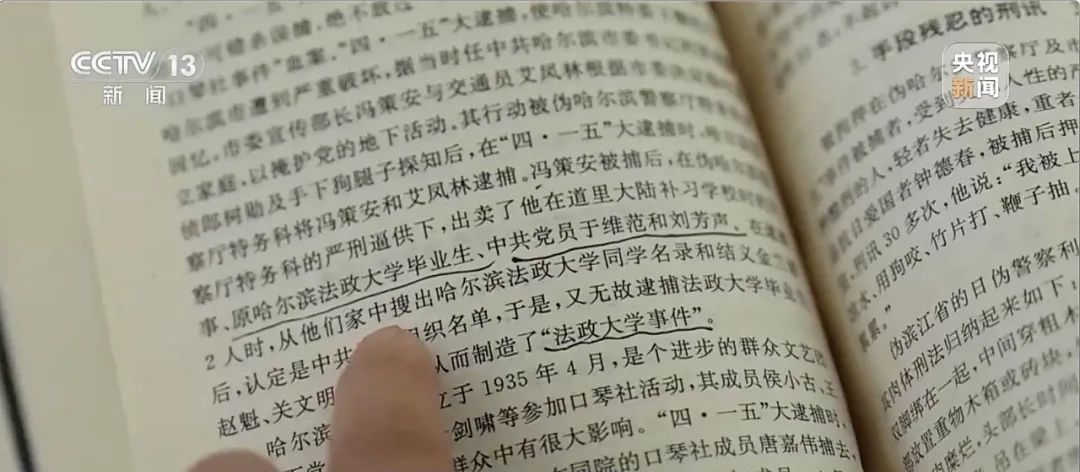 CCTV 13
新闻
央视
新闻
可错杀误捕，绝不放过
“四·一五”大逮捕，使哈尔滨
事件”血案。
哈尔滨市遭到严重破坏，据当时任中共哈尔滨市委书记的
回忆，市委宣传部长冯策安与交通员艾风林根据市委决
立家庭，以掩护党的地下活动，其行动被伪哈尔滨警察厅特
侦郎柯勋及手下狗腿子探知后，在“四·一五”大逮捕时，哈
察厅特务科将冯策安和艾风林逮捕。冯策安被捕后，在伪哈尔滨
察厅特务科的严刑逼供下，出卖了他在道里大陆补习学校时的
事、原哈尔滨法政大学毕业生、中共党员于维范和刘芳声。在逮
2人时，从他们家中搜出哈尔滨法政大学同学名录和结义金兰
后，认定是中共 组织名单，于是，又无故逮捕法政大学毕业生
赵魁、关文明 从而制造了“法政大学事件”。
哈尔滨 立于1935年4月，是个进步的群众文艺
剑啸等参加口琴社活动，其成员侯小古、王
群众中有很大影响。“四·一五”大逮捕时，
同院的口琴社成员唐嘉伟捕去，
3. 手段残忍的刑讯
被拘押在伪哈尔 察厅及
事件被捕者，受到 人性的严
的人，轻者失去健康，重者
抗日爱国者钟德春，被捕后押
，刑讯30多次，他说：“我被上
凉水、用狗咬、竹片打、鞭子抽。
累累。”
伪滨江省的日伪警察利
肉体刑法归纳起来如下：
双脚绑在一起，中间穿粗木
部放置重物木箱或砖块，
糜烂，头部长时间